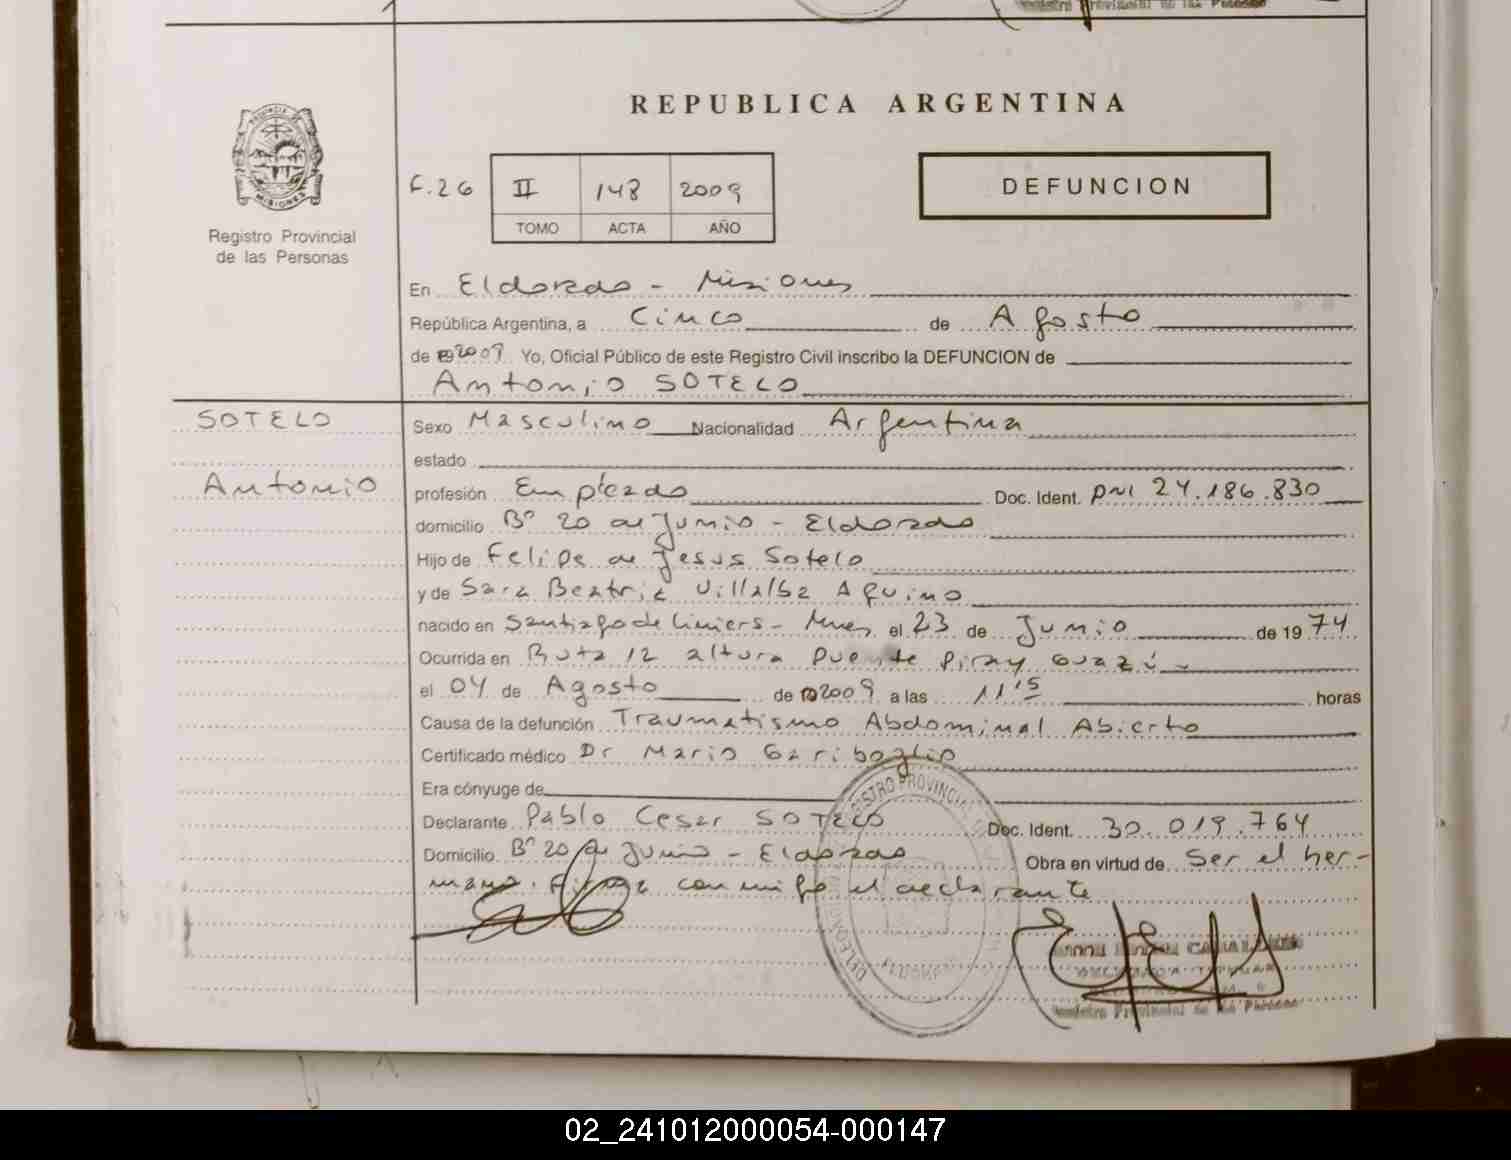 Registro Provincial de las Personas
REPUBLICA ARGENTINA
PROVINCIA DE
MISIONES
Registro Provincial
de las Personas
F. 26 II 148 2009
TOMO ACTA AÑO
DEFUNCION
En Eldorado - Misiones
República Argentina, a Cinco de Agosto
de 2009 Yo, Oficial Público de este Registro Civil inscribo la DEFUNCION de
Antonio SOTELO
SOTELO
Antonio
Sexo Masculino Nacionalidad Argentina
estado
profesión Empleado Doc. Ident. DNI 24.186.830
domicilio Bº 20 de Junio - Eldorado
Hijo de Felipe de Jesus Sotelo
y de Sara Beatriz Villalba Aquino
nacido en Santiago de Liniers - Mnes el 23 de Junio de 1974
Ocurrida en Ruta 12 altura Puente Piray Guazú
el 04 de Agosto de 2009 a las 11'15 horas
Causa de la defunción Traumatismo Abdominal Abierto
Certificado médico Dr Mario Gariboglio
Era cónyuge de
Declarante Pablo Cesar SOTELO Doc. Ident. 30.019.764
Domicilio Bº 20 de Junio - Eldorado Obra en virtud de Ser el her-
mano. Firma conmigo el declarante
REGISTRO PROVINCIAL
Registro Provincial de las Personas
02_241012000054-000147